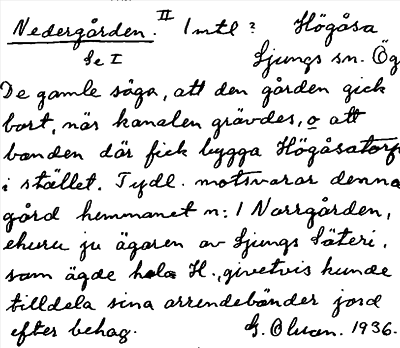 Nedergården. II 1 mtl ? Högåsa
Se I Ljungs sn. Ög
De gamle säga, att den gården gick
bort, när kanalen grävdes, o att
bonden där fick bygga Högåsatorp
i stället. Tydl. motsvarar denna
gård hemmanet n:1 Norrgården,
ehuru ju ägaren av Ljungs Säteri,
som ägde hela H., givetvis kunde
tilldela sina arrendebönder jord
efter behag. G. Olson. 1936.